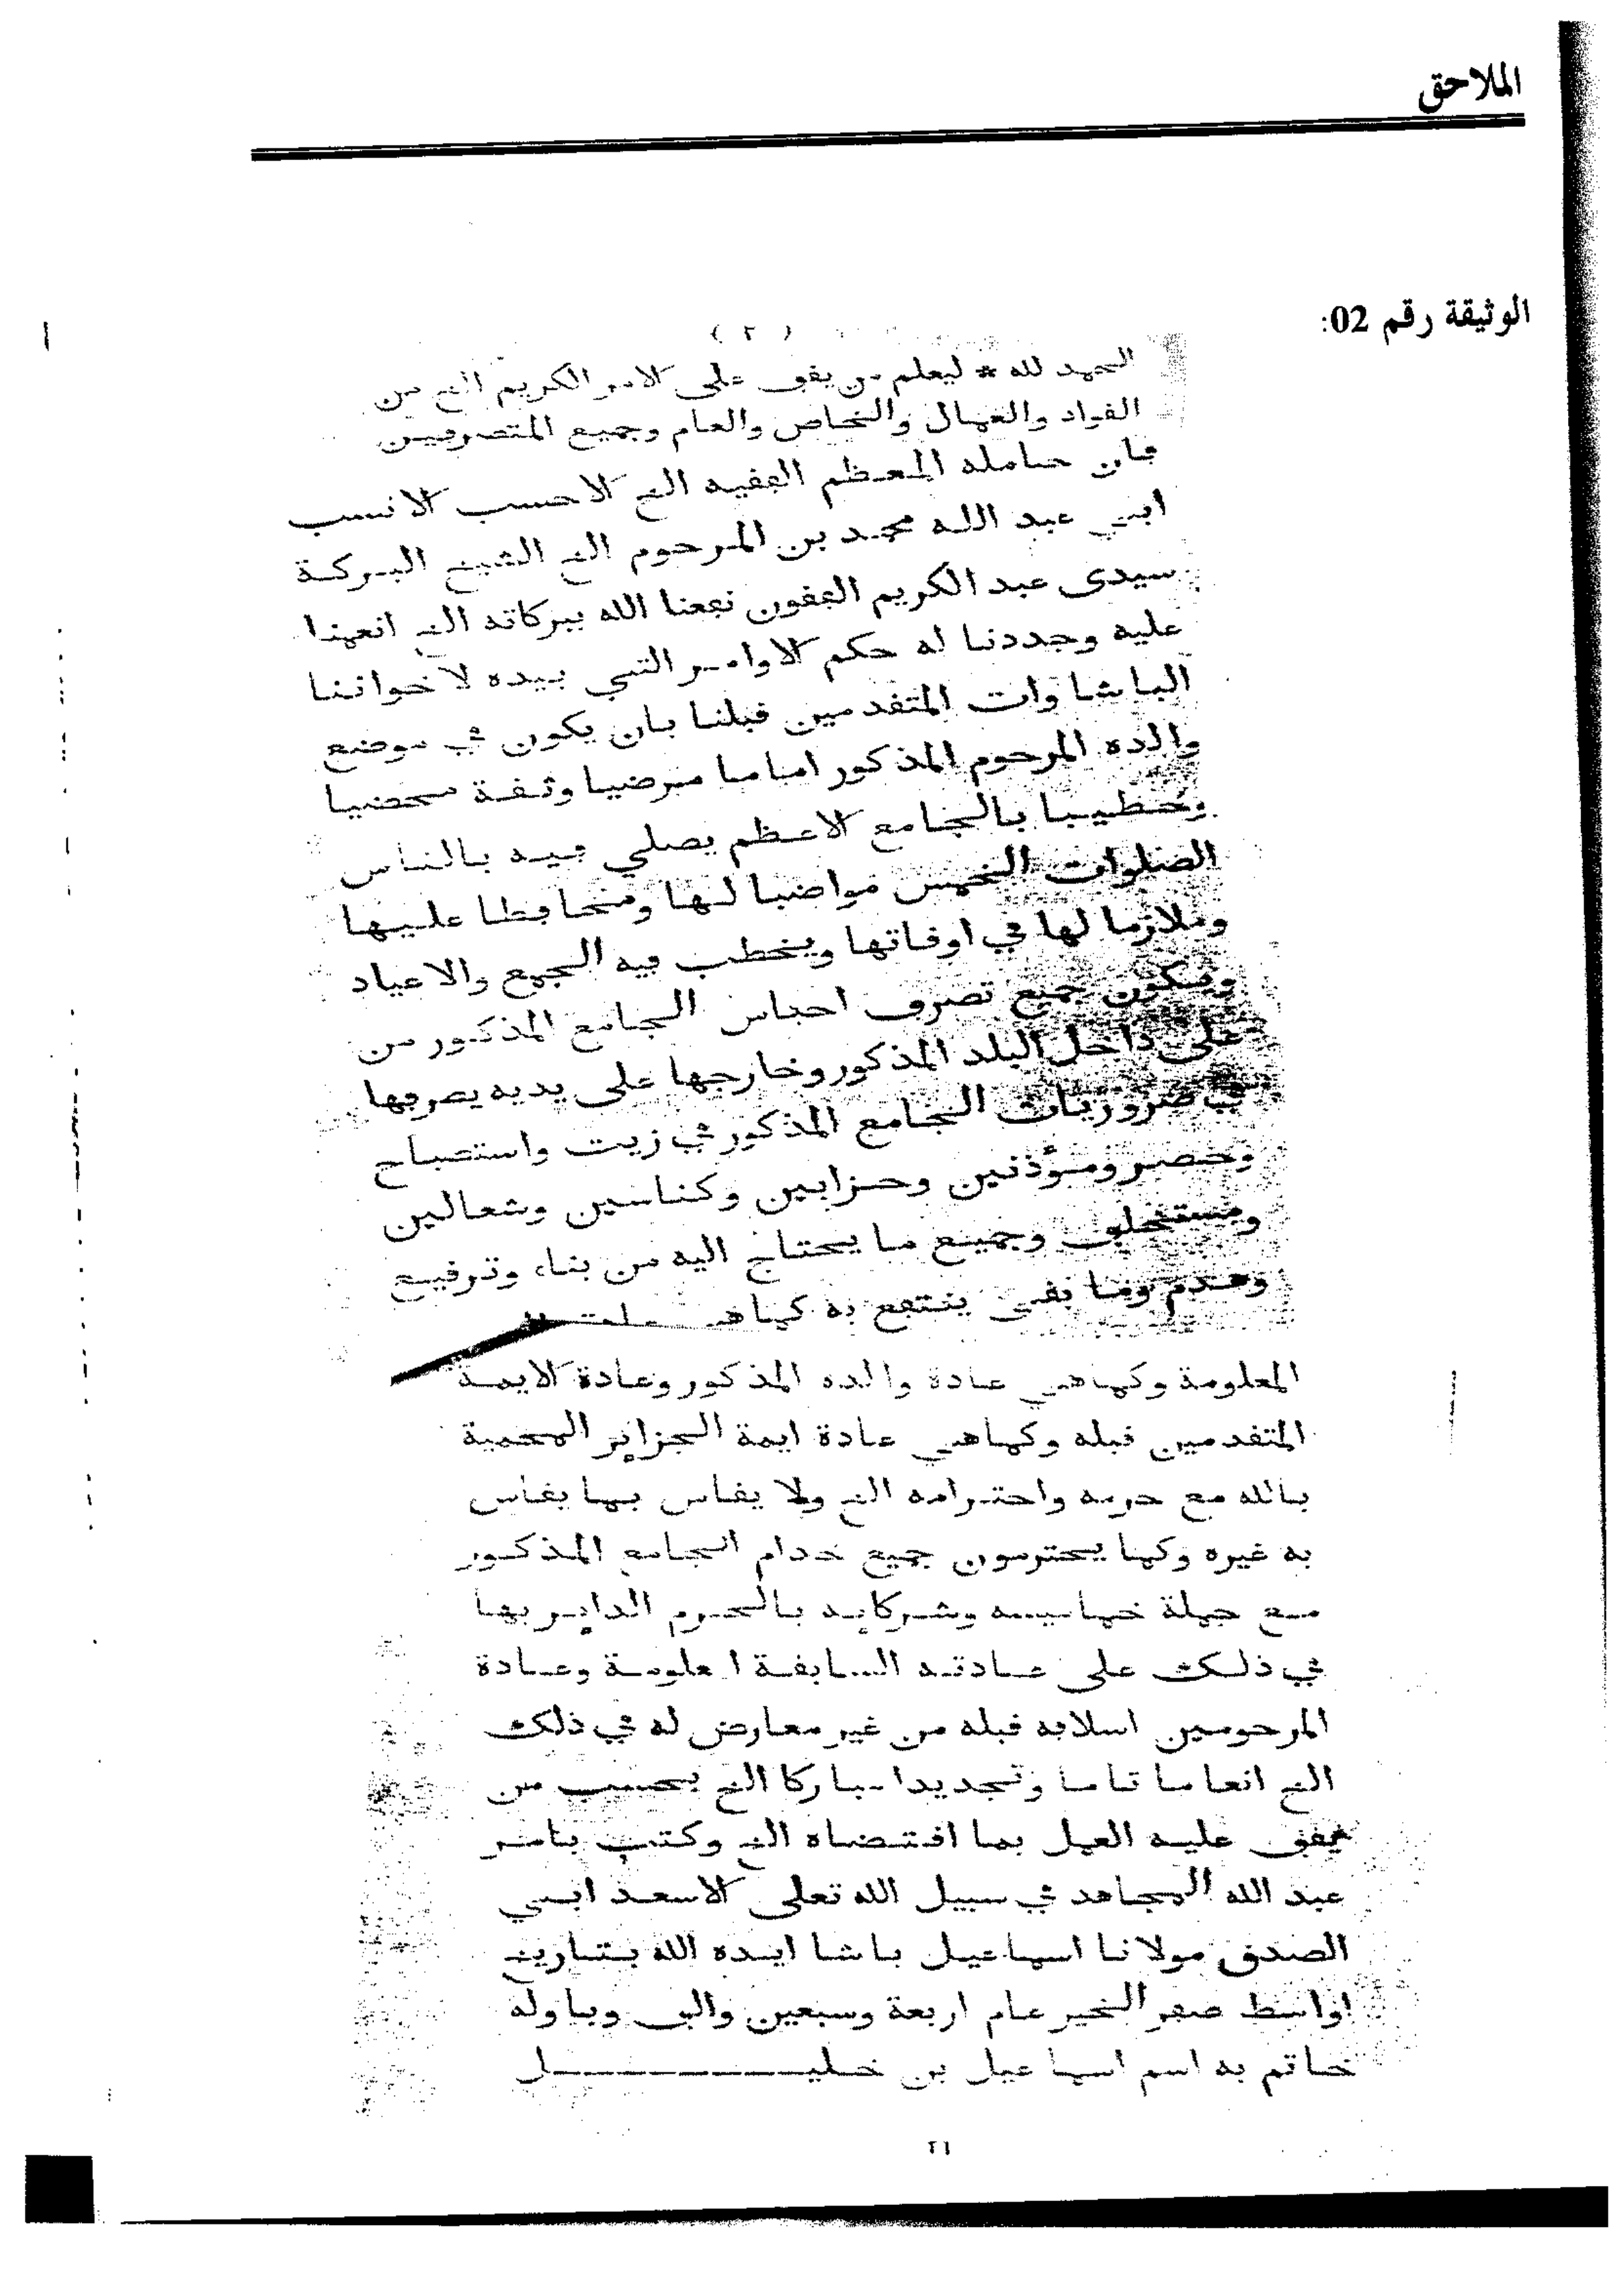 الملاحق
الوثيقة رقم 02:
( ٢ )
الحمد لله * ليعلم من يقف على الامر الكريم الخ من
القواد والعمال والخاص والعام وجميع المتصرفين
فان حامله المعظم الفقيه الخ الاحسب الانسب
ابي عبد الله محمد بن المرحوم الخ الشيخ البركة
سيدى عبد الكريم الفقون نفعنا الله ببركاته الخ انعمنا
عليه وجددنا له حكم الاوامر التي بيده لاخواننا
الباشاوات المتقدمين قبلنا بان يكون في موضع
والده المرحوم المذكور اماما مرضيا وثقة محضيا
وخطيبا بالجامع الاعظم يصلي فيه بالناس
الصلوات الخمس مواضبا لها ومحافظا عليها
وملازما لها في اوقاتها ويخطب فيه الجمع والاعياد
ويكون جميع تصرف احباس الجامع المذكور من
على داخل البلد المذكور وخارجها على يديه يصرفها
في ضروريات الجامع المذكور في زيت واستصباح
وحصر ومؤذنين وحزابين وكناسين وشعالين
ومستخلف وجميع ما يحتاج اليه من بناء وترفيع
وهدم وما بقى ينتفع به كما هي
المعلومة وكما هي عادة والده المذكور وعادة الايمة
المتقدمين قبله وكما هي عادة ايمة الجزائر المحمية
بالله مع حرمه واحترامه الخ ولا يقاس بما يقاس
به غيره وكما يحترمون جميع خدام الجامع المذكور
مع جملة خماسيه وشركايه بالحرم الداير بها
في ذلك على عادته السابقة ا علومة وعادة
المرحومين اسلافه قبله من غير معارض له في ذلك
الخ انعاما تاما وتجديدا مباركا الخ بحسب من
يقف عليه العمل بما اقتضاه الخ وكتب بامر
عبد الله المجاهد في سبيل الله تعلى الاسعد ابي
الصدق مولانا اسماعيل باشا ايده الله بتاريخ
اواسط صفر الخير عام اربعة وسبعين والف وباوله
خاتم به اسم اسماعيل بن خليـــــــل
٢١